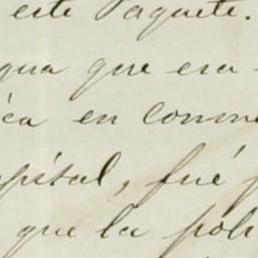 este Paquete.
gua que era
ca en comm
spital, fué p
que la pólv